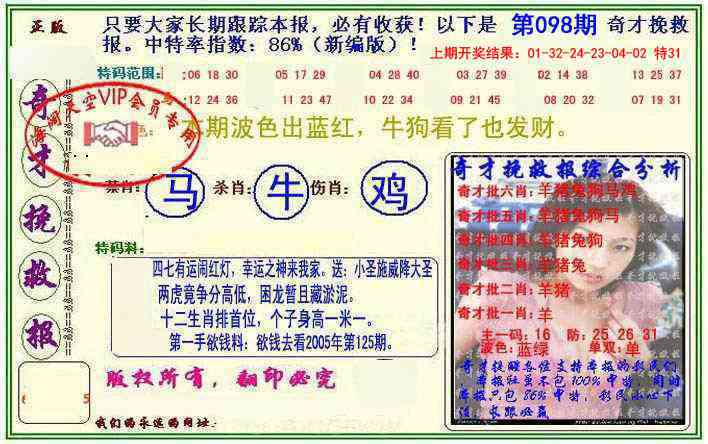 正版
只要大家长期跟踪本报，必有收获！以下是 第098期 奇才挽救
报。中特率指数：86%（新编版）！
上期开奖结果：01-32-24-23-04-02 特31
特码范围：
:06 18 30 05 17 29 04 28 40 03 27 39 02 14 38 13 25 37
:12 24 36 11 23 47 10 22 34 09 21 45 08 20 32 07 19 31
天空VIP会员专用
本期波色出蓝红，牛狗看了也发财。
奇才挽救报
禁肖：马 杀肖：牛 伤肖：鸡
特码料：
四七有运闹红灯，幸运之神来我家。送：小圣施威降大圣
两虎竟争分高低，困龙暂且藏淤泥。
十二生肖排首位，个子身高一米一。
第一手欲钱料：欲钱去看2005年第125期。
版权所有，翻印必究
我们的永远的网址：
奇才挽救报综合分析
奇才批六肖：羊猪兔狗马鸡
奇才批五肖：羊猪兔狗马
奇才批四肖：羊猪兔狗
奇才批三肖：羊猪兔
奇才批二肖：羊猪
奇才批一肖：羊
主一码：16 防：25 26 31
波色：蓝绿 单双：单
奇才挽救各位支持本报的彩民们
本报杜虽不包100%中特，同时
本报只包86%中特，彩民小心下
注，长跟必赢